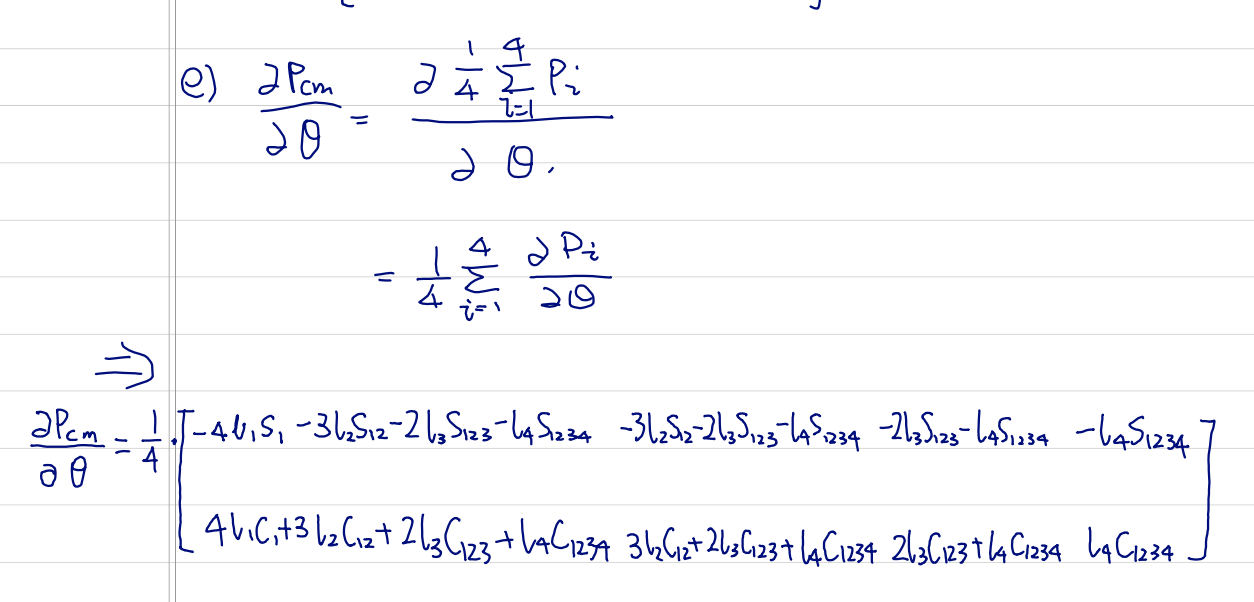 e) ∂P_cm/∂θ = ∂ 1/4 Σ_{i=1}^{4} P_i / ∂θ.
= 1/4 Σ_{i=1}^{4} ∂P_i/∂θ
⇒
∂P_cm/∂θ = 1/4 · [ -4l_1S_1 -3l_2S_12 -2l_3S_123 -l_4S_1234   -3l_2S_2 -2l_3S_123 -l_4S_1234   -2l_3S_123 -l_4S_1234   -l_4S_1234
4l_1C_1+3l_2C_12+2l_3C_123+l_4C_1234   3l_2C_12+2l_3C_123+l_4C_1234   2l_3C_123+l_4C_1234   l_4C_1234 ]